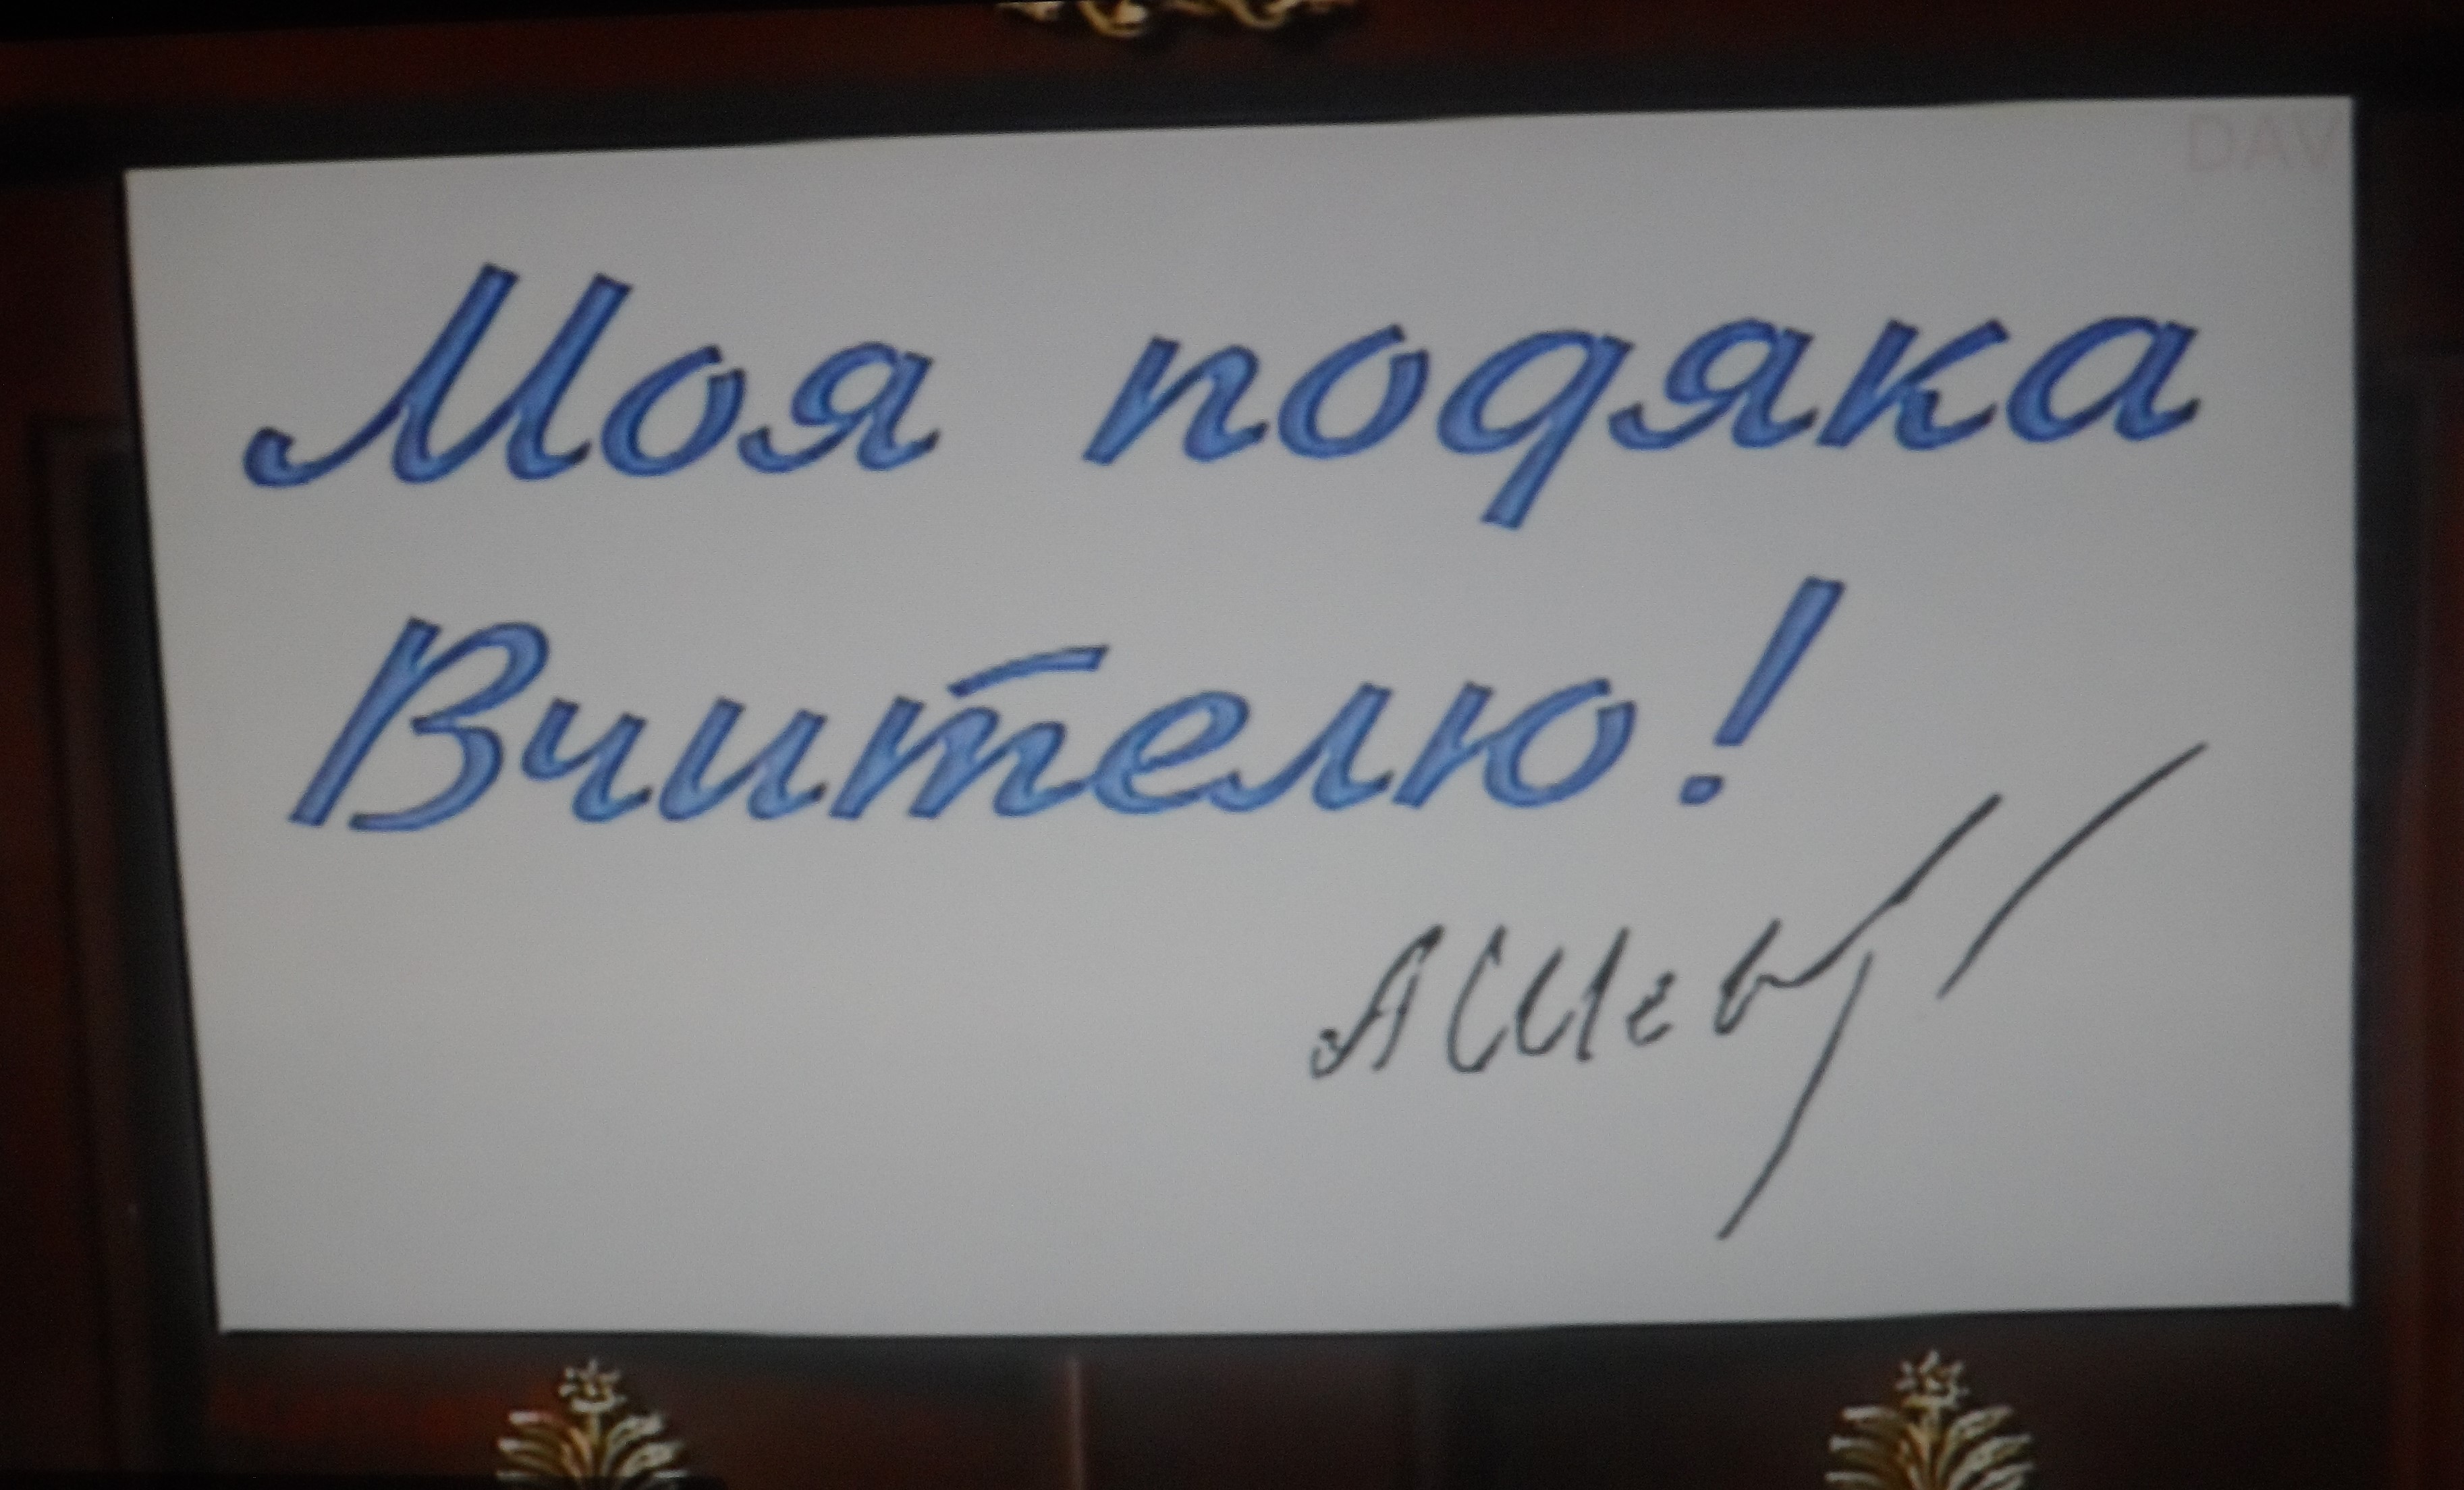 DAV
Моя подяка
Вчителю!